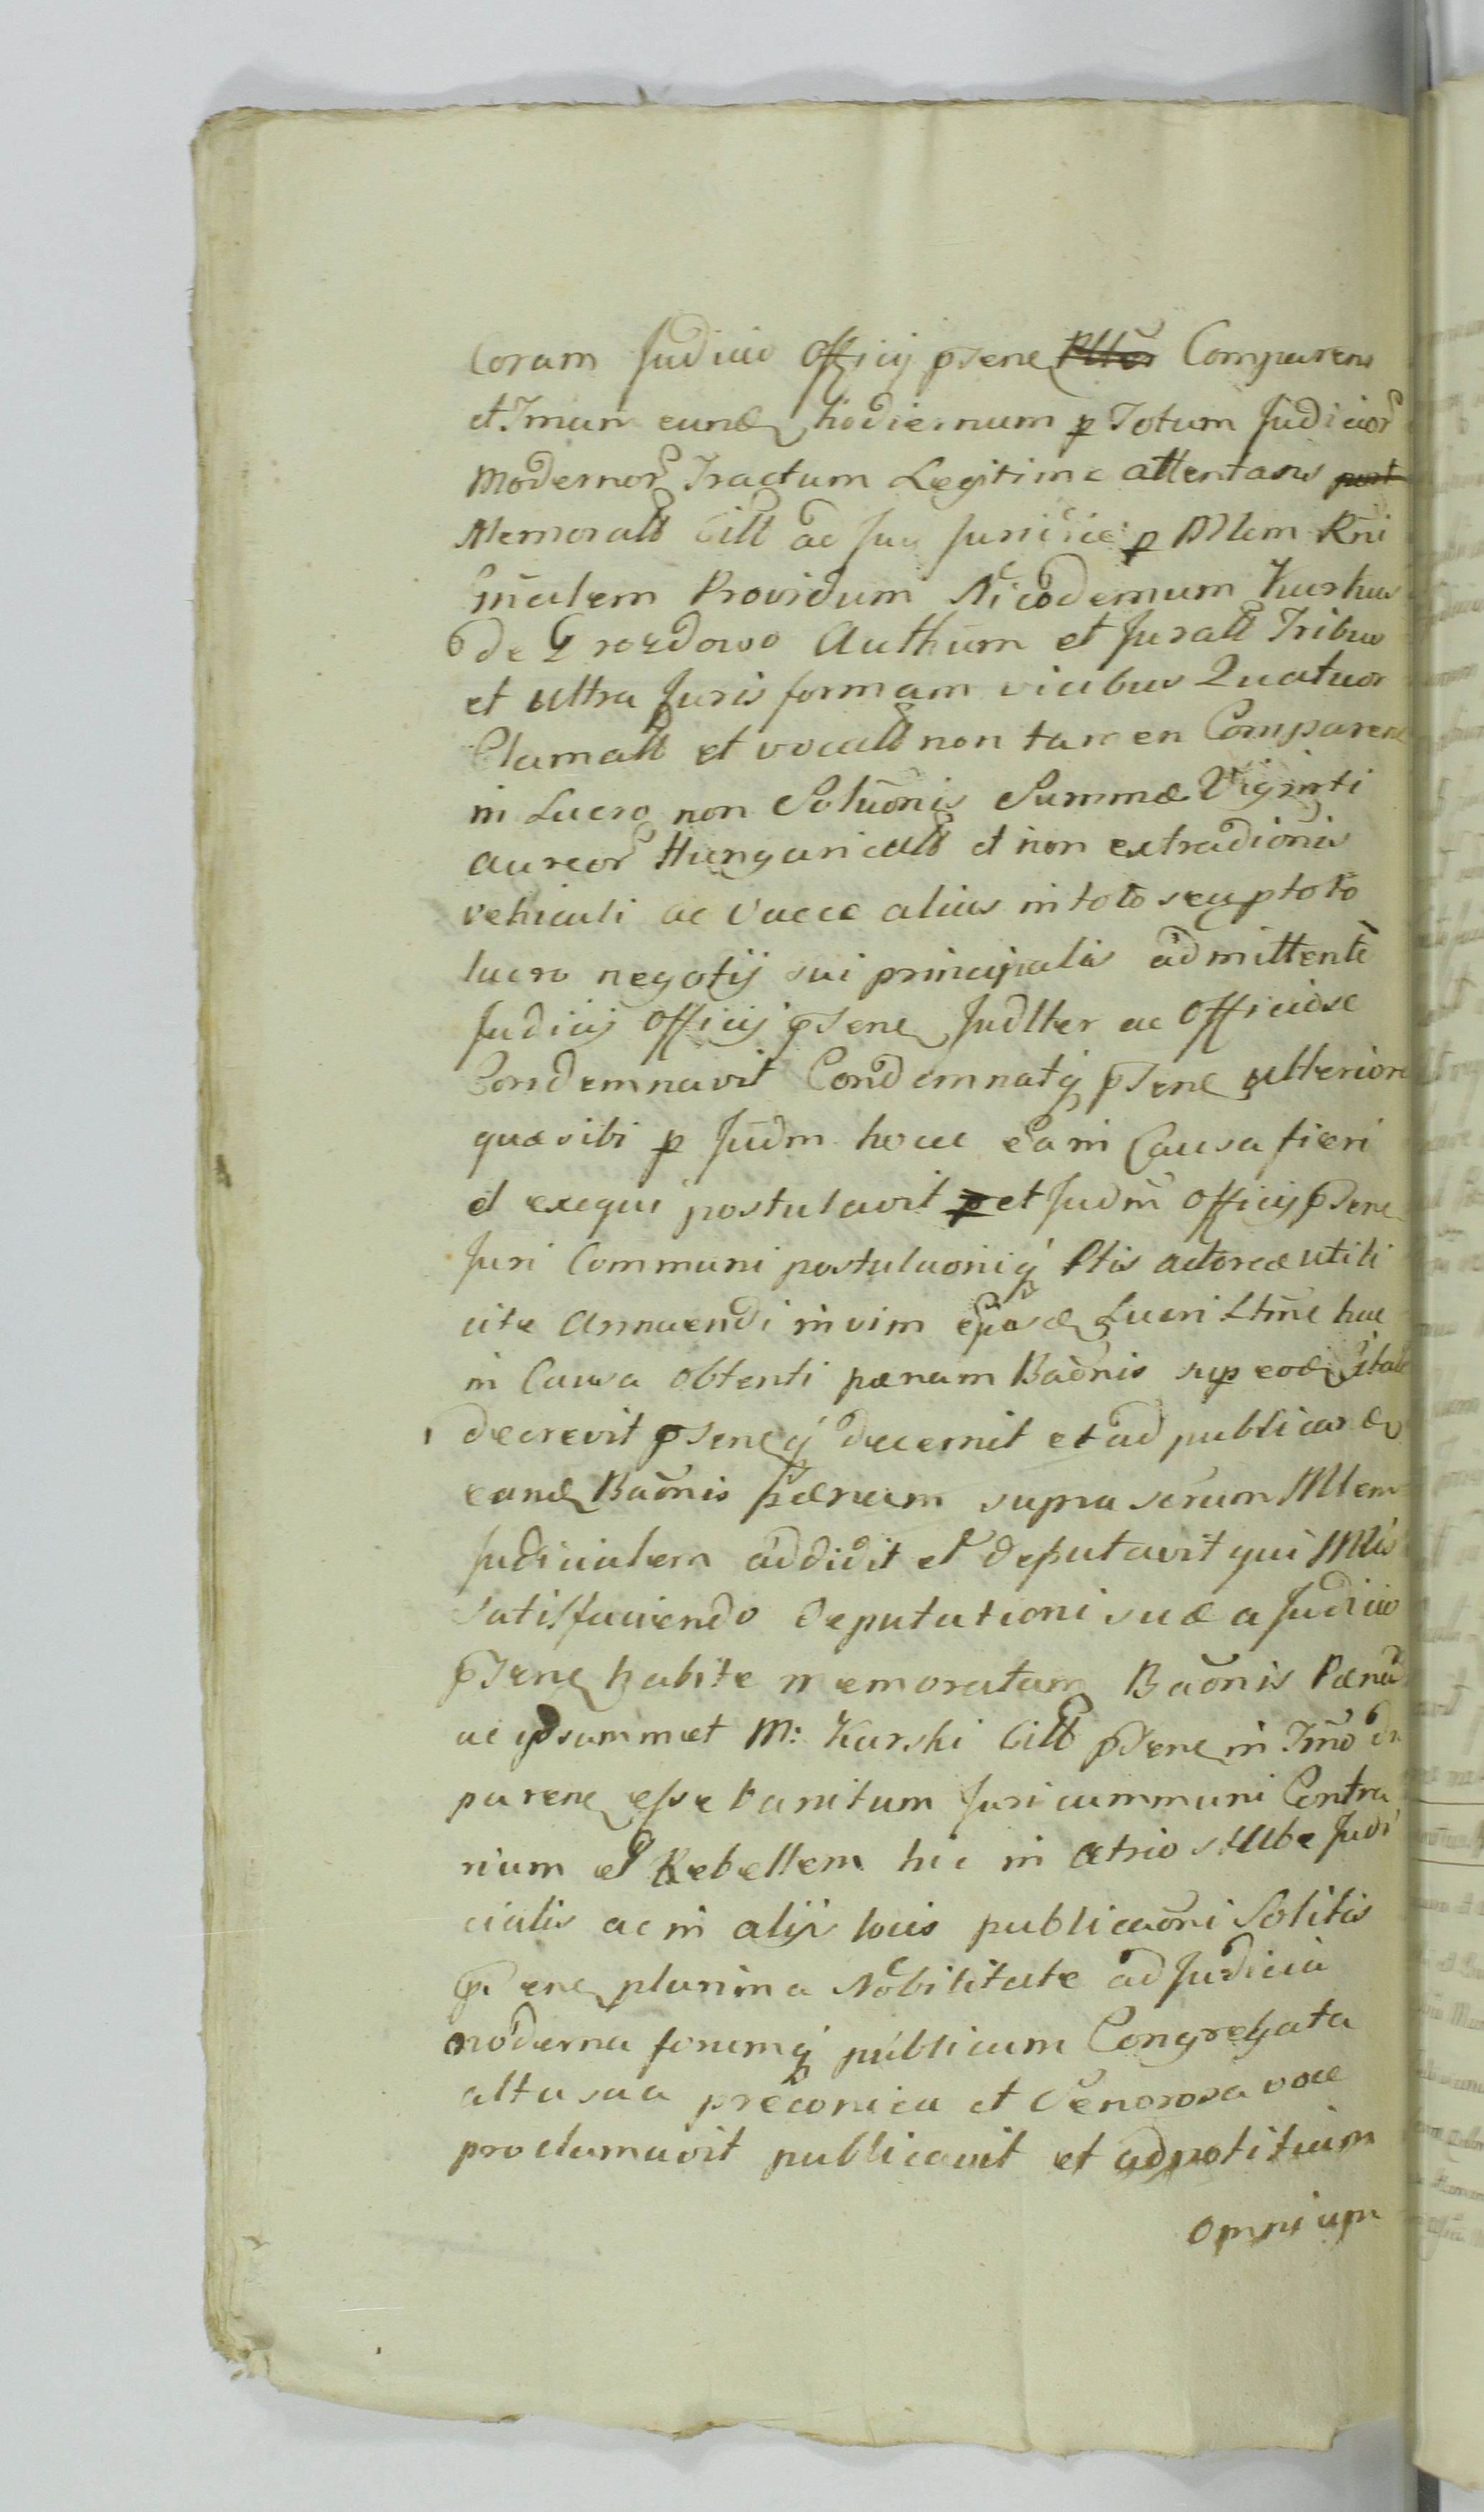 Coram Judicio Officij pSene Ptter Comparens
et Tmum eund hodiernum p Totum Judicior
Modernor Tractum Legitime attentans post
Memoratt Citt ac Juri Juridice p Mlem Rni
Gnalem Providum Nicodemum Kurkus
de Grozdowo Authum et Juratt Tribus
et ultra Juris formam vicibus Quatuor
Clamatt et vocatt non tamen Comparen
in Lucro non Soluonis Summæ Viginti
aureor Hungaricatt et non extradionis
vehiculi ac Vacce alius in toto seu p toto
lucro negotij sui principalis admittente
Judicij Officij pSene Judtter ac Officiose
Condemnavit Condemnatq pSene ulteriore
quæ sibi p Judm hocce Ea in Causa fieri
et exequi postulavit p et Judm Officij pSene
Juri Communi postulaoniq Ptis actoreæ utili
cite Annuendi in vim Lucri Ltme hac
in Causa obtenti pænam Baonis sup eod Citato
decrevit pSeneq decernit et ad publicand
eand Baonis Pænam supra scrum Mlem
Judicialem addidit et deputavit qui Mlis
Satisfaciendo deputationi suæ a Judicio
pSene habite memoratam Baonis Pænã
ac ipsummet M: Kurski Citt pSene in Tmo
parene esse Banitum Juri cummuni Contra
rium et Rebellem hic in atrio stube Judi
cialis ac in alijs locis publicaoni Solitis
pSene plurima Nobilitate ad Judicia
moderna forumq publicum Congregata
alta sua præconica et Senorosa voce
proclamavit publicavit et ad notitiam
omnium